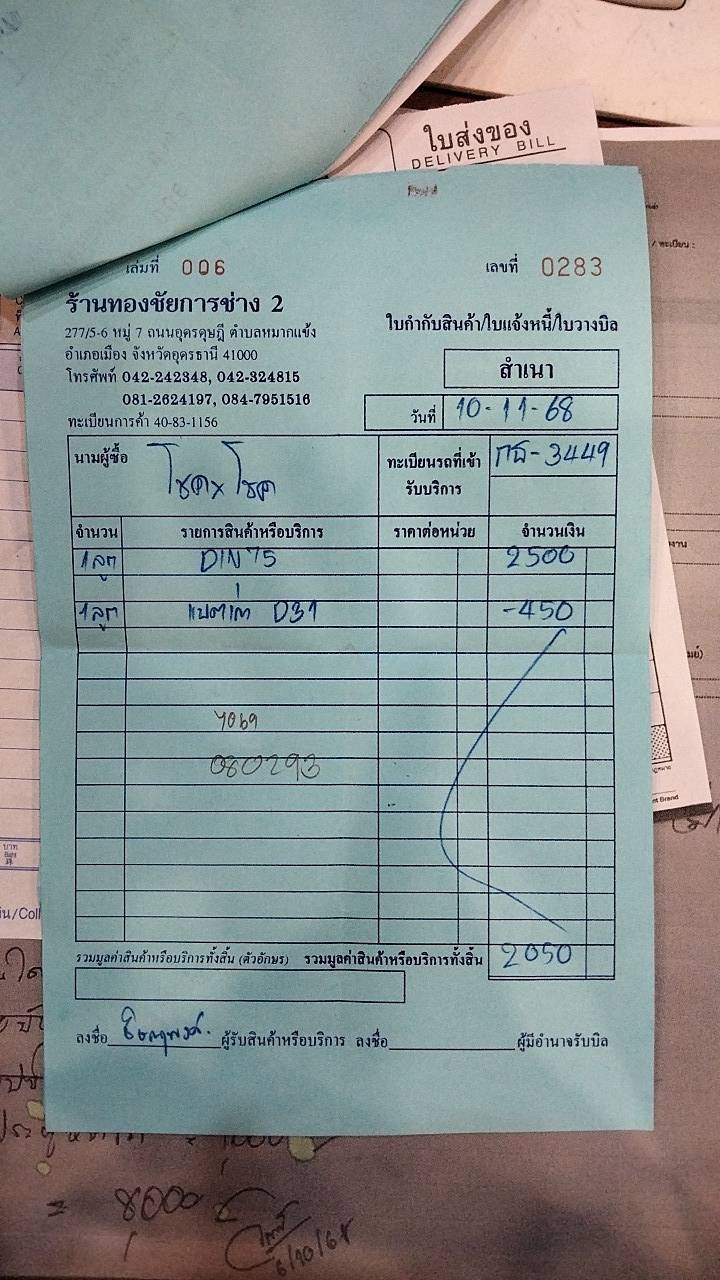 ใบส่งของ
DELIVERY BILL
เล่มที่ 006 เลขที่ 0283
ร้านทองชัยการช่าง 2
277/5-6 หมู่ 7 ถนนอุดรดุษฎี ตำบลหมากแข้ง
ใบกำกับสินค้า/ใบแจ้งหนี้/ใบวางบิล
อำเภอเมือง จังหวัดอุดรธานี 41000
โทรศัพท์ 042-242348, 042-324815
สำเนา
081-2624197, 084-7951516
ทะเบียนการค้า 40-83-1156
วันที่ 10-11-68
นามผู้ซื้อ โชค x โชค
ทะเบียนรถที่เข้ารับบริการ -3449
จำนวน รายการสินค้าหรือบริการ ราคาต่อหน่วย จำนวนเงิน
1ลูก DIN 75 2500
1ลูก แบตเก่า D31 -450
080293
รวมมูลค่าสินค้าหรือบริการทั้งสิ้น (ตัวอักษร) รวมมูลค่าสินค้าหรือบริการทั้งสิ้น 2050
ลงชื่อ ผู้รับสินค้าหรือบริการ ลงชื่อ ผู้มีอำนาจรับบิล
= 8000
6/10/68